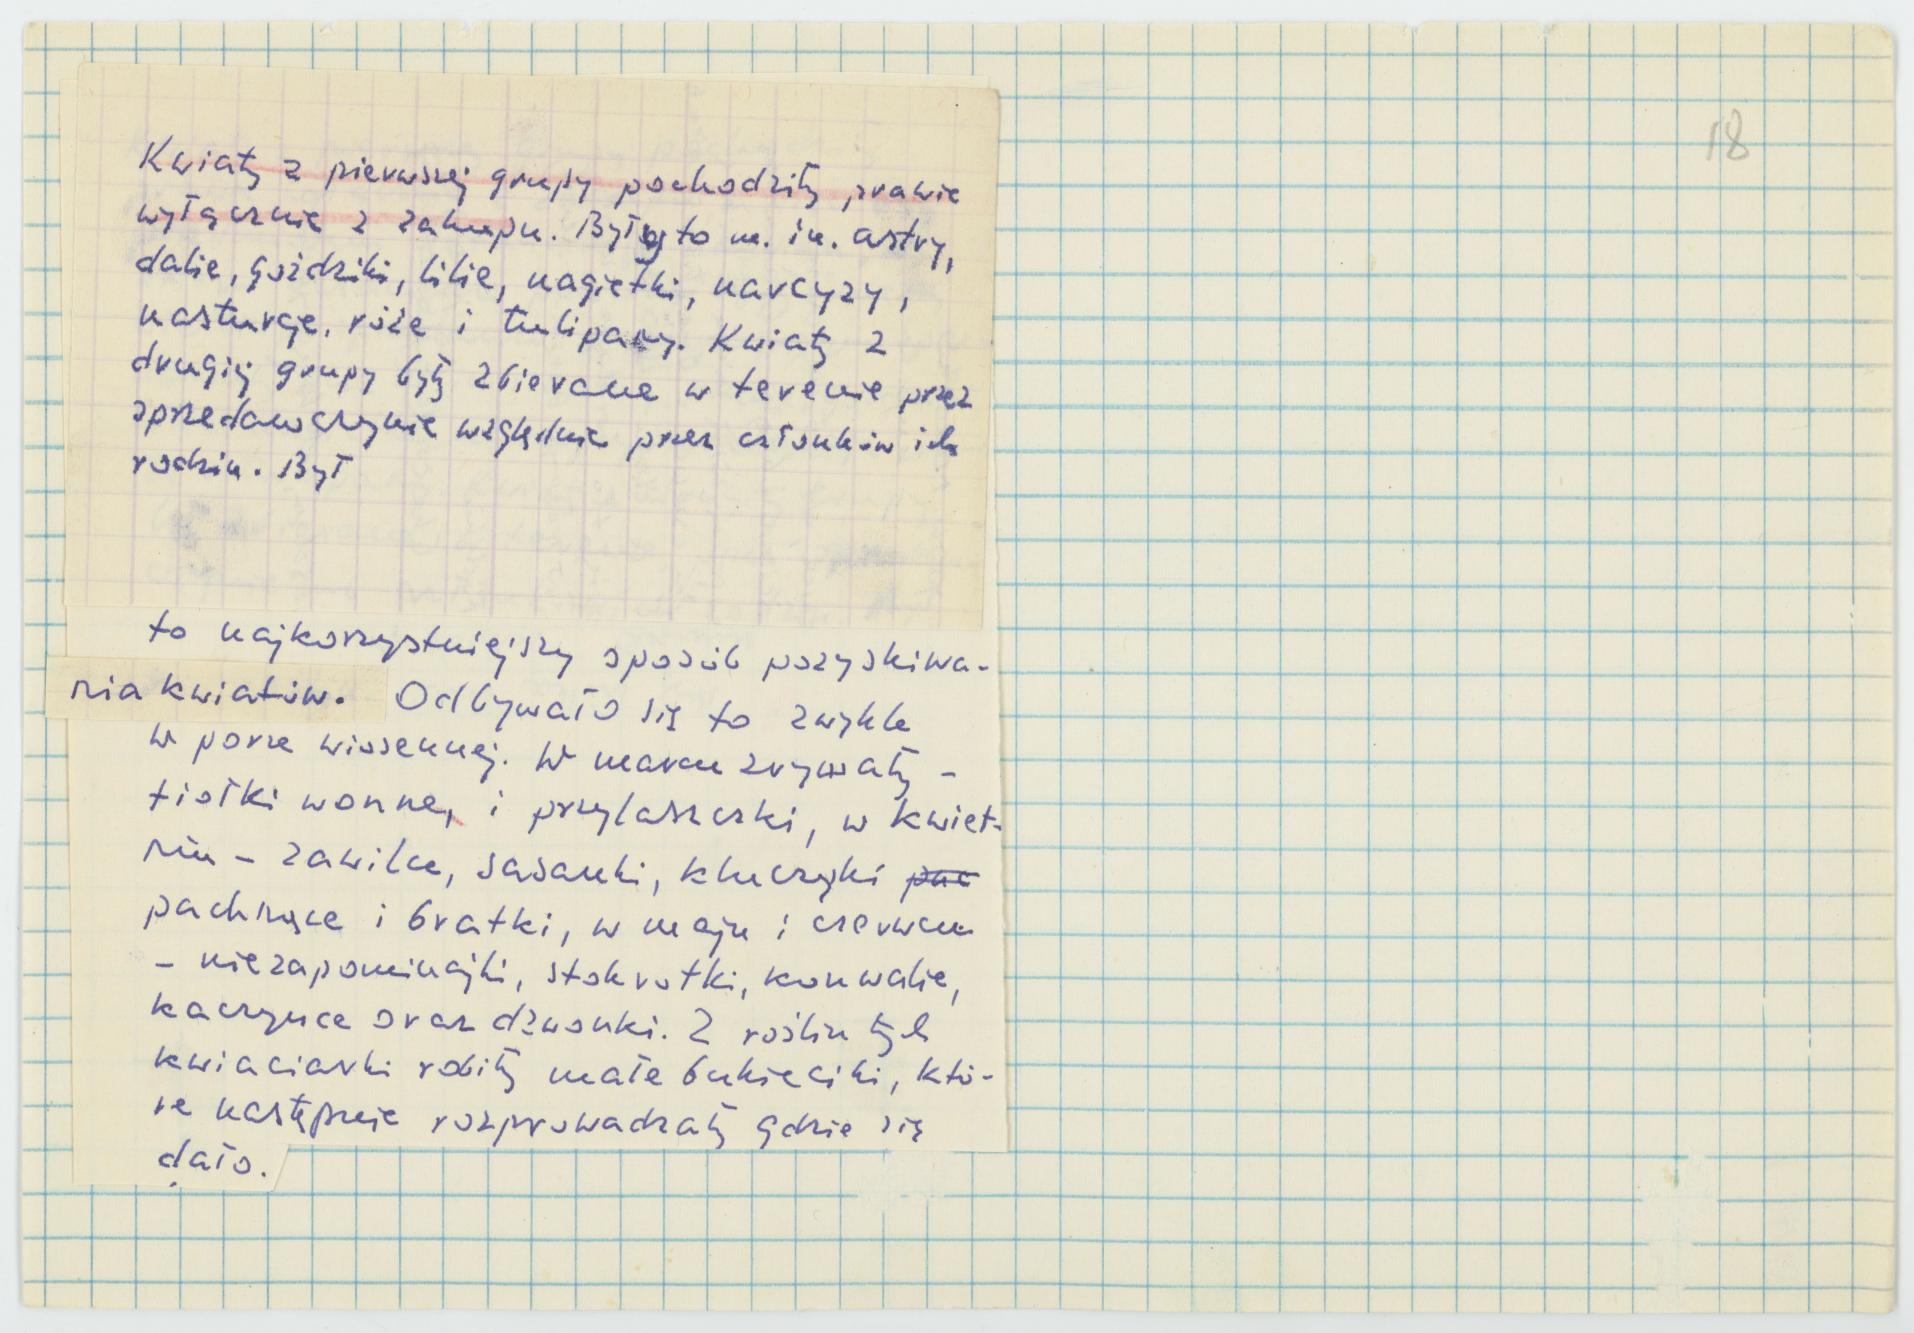 18
Kwiaty z pierwszej grupy pochodziły prawie
wyłącznie z zakupu. Były to m. in. astry,
dalie, goździki, lilie, nagietki, narcyzy,
nasturcje, róże i tulipany. Kwiaty z
drugiej grupy były zbierane w terenie przez
sprzedawczynie względnie przez członków ich
rodzin. Był
to najkorzystniejszy sposób pozyskiwa-
nia kwiatów. Odbywało się to zwykle
w porze wiosennej. W marcu zrywały -
fiołki wonne, i przylaszczki, w kwiet-
niu - zawilce, sasanki, kluczyki
pachnące i bratki, w maju i czerwcu
- niezapominajki, stokrotki, konwalie,
kaczyńce oraz dzwonki. Z roślin tych
kwiaciarki robiły małe bukieciki, któ-
re następnie rozprowadzały gdzie się
dało.